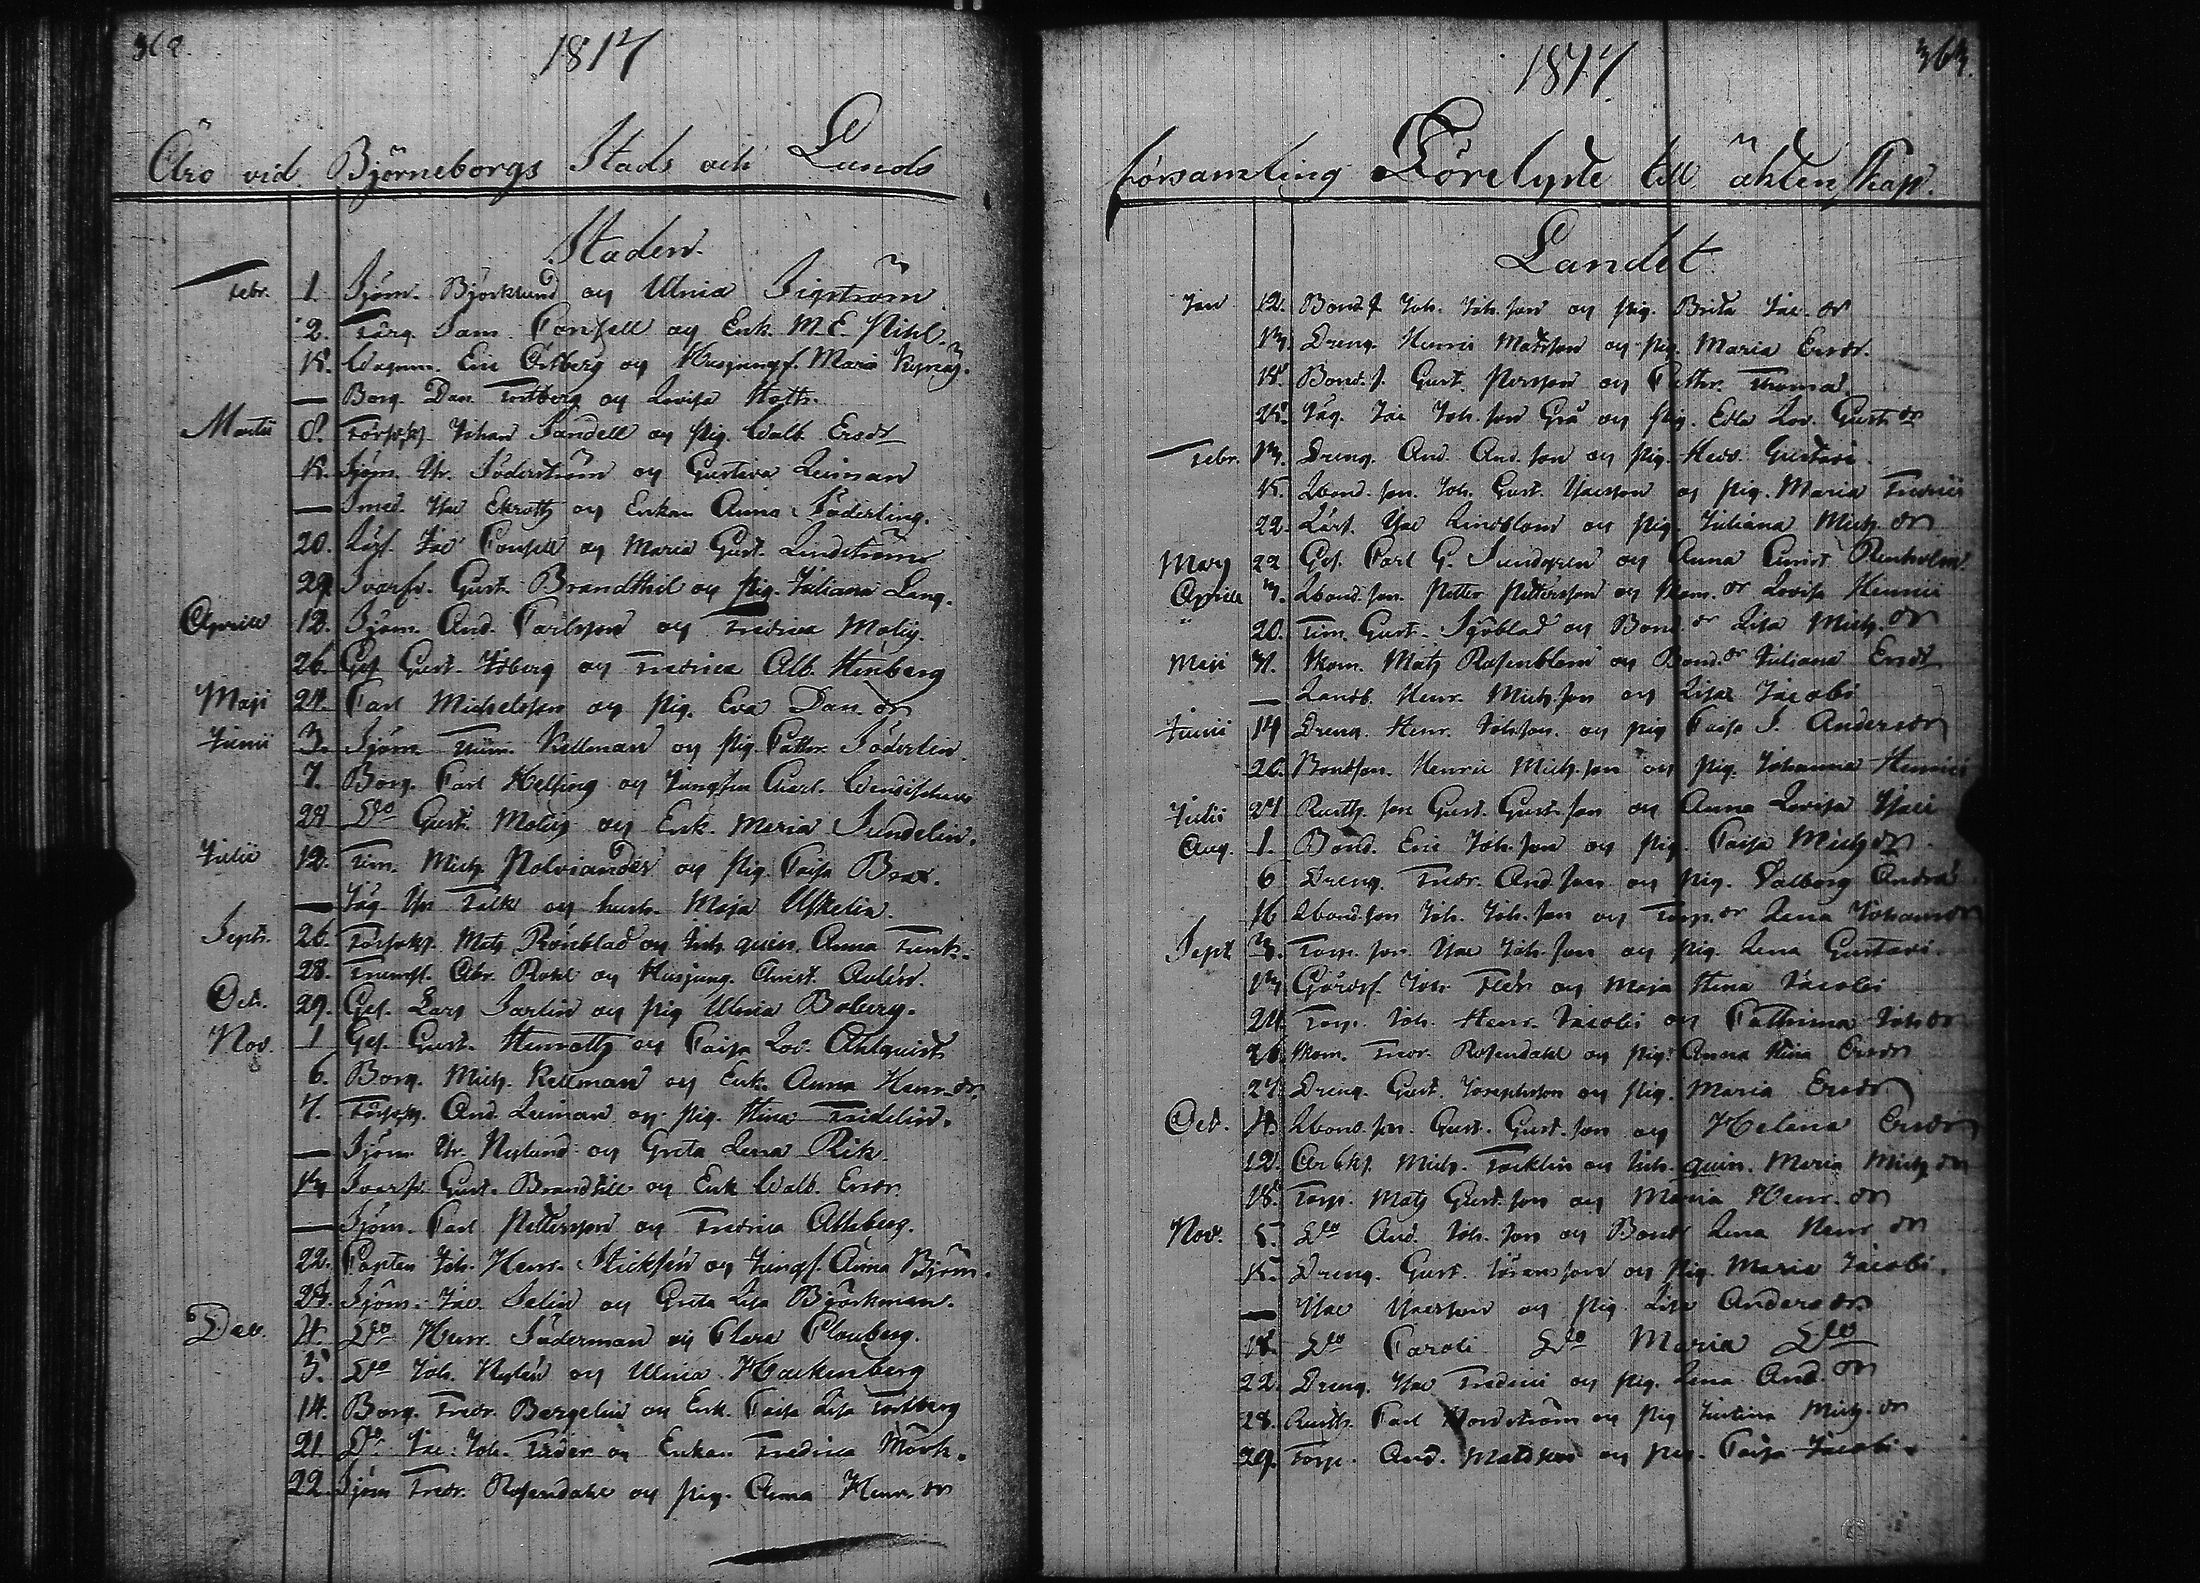 362.
1817
Äro vid Björneborgs Stads och Lands
Staden.
Febr. 1. Sjöm. Björklund og Ulrica Sigström
2. Färg. Sam. Consell og Enk. M. E. Pihl.
18. Wagnm. Eric Östberg og Husjungf. Maria
— Borg. Dan. Tostberg og Lovisa
Martii 8. Johan Sandell og pig. Walb. Ersdr
15. Sjöm. Gr. Söderström og Gustava Leiman
— Smed. Isac og Enkan Anna Söderling.
20. Jac Consell og Maria Gust. Lindström
29. Svarfv. Gust. Brandthil og pig. Juliana Lang.
Aprill 12. Sjöm. And. Carlsson og Fredrica
26. Ges. Gust. Isberg og Fredrica Alb. Stenberg
Maji 24. Carl Michelsson og pig. Eva Dan. dr
Junii 3. Sjöm. Kellman og pig. Cathr. Söderlin
7. Borg. Carl Helsing og Jungfru Carl.
28 Do Gust. og Enk. Maria Sundelin.
Julii 12. Tim. Mich. Polviander og pig. Caisa Brax.
— og hustr. Maja
Septr. 26. Mats Rönblad og Inh. quin. Anna Funk.
28. Trumsl. Abr. Rohl og Husjung. Christ. Avelin.
Oct. 29. Ges. Lars Sarlin og pig Ulrica Boberg.
Nov. 1 Ges. Gust. og Caisa Lov. Ahlquist
6. Borg. Mich. Kellman og Enk. Anna Henr. dr.
7. And. Leiman og pig. Stina Fridelin.
— Sjöm. Gr. Nylund og Greta Lena Rik.
13 Svarfv. Gust. Brandtill og Enk. Walb. Ersdr.
— Sjöm. Carl Pettersson og Fredrica Ahlberg.
22. Capten Joh. Henr. og Jungf. Anna Björn.
23. Sjöm. Jac. Selin og Greta Lisa Björkman.
Dec. 4. Do Henr. Söderman og Clara Clouberg.
5. Do Joh. Nylén og Ulrica Hackenberg
14. Borg. Fredr. Bergelin og Enk. Caisa Lisa Tostberg
21. Do Jac. Joh. og Enkan Fredrica Mörk.
22. Sjöm Fredr. Rosendahl og pig. Anna Henr. dr
363.
1817.
församling Förelyste till äktenskap.
Landet
Jan 12. Bond. f. Joh. Joh. son og pig. Brita Jac. dr
13. Dreng. Henric Matsson og pig. Maria Ersdr.
18. Bond. f. Gust. Persson og Cathr. Thoma
25. Jac Joh. son Grå og pig. Edla Lov. Gust. dr
Febr. 13. Dreng. And. And. son og pig. Hedv. Gustavi.
15. Lbond. son. Joh. Gust. Isacsson og pig. Maria Fredrici
22. Isac Lindblom og pig. Juliana Mich. dr
Mars 22 Ges. Carl G. Sundgren og Anna Christ. Renholm
Aprill 7. Lbond. son. Petter Pettersson og Skom. dr Lovisa Henrici
" 20. Tim. Gust. Sjöblad og Bond. dr Lisa Mich. dr
Maji 31. Skom. Mats Rosenblom og Bond. dr Juliana Ersdr
— Landb. Henr. Mich. son og Lisa Jacobi
Junii 14 Dreng. Henr. Joh. son. og pig Caisa S. Andersdr
26. Bondson. Henric Mich. son og pig. Johanna Henrici
Julii 27 Rusth. son Gust. Gust. son og Anna Lovisa Isaci
Aug. 1. Bond. Eric Joh. son og pig. Caisa Mich. dr
6 Dreng. Fredr. And. son og pig. Valborg Andra
16 Lbond. son Joh. Joh. son og Torp. dr Lena Johansdr
Sept 3. Torp. son Isac Joh. son og pig. Lena Gustavi.
13 Joh. og Maja Stina Jacobi
24 Torp. Joh. Henr. Jacobi og Cathrina Joh. dr
26. Skom. Fredr. Rosendahl og pig. Anna Stina Ersdr
27. Dreng. Gust. Josephsson og pig. Maria Ersdr
Oct. 4. Lbond. son. Gust. Gust. son og Helena Ersdr
12. Mich. og Inh. quin. Maria Mich. dr
18. Torp. Mats Gust. son og Maria Henr. dr
Nov. 5. Do And. Joh. son og Bondr Lena Henr. dr
15. Dreng. Gust. og pig. Maria Jacobi.
— Isac Isacsson og pig. Lisa Andersdr.
18. Do Caroli Do Maria Do
22. Dreng. Isac Fredrici og pig. Lena And. dr
28. Rusth. Carl Nordström og pig Justina Mich. dr
29. Torp. And. Matsson og pig. Caisa Jacobi.